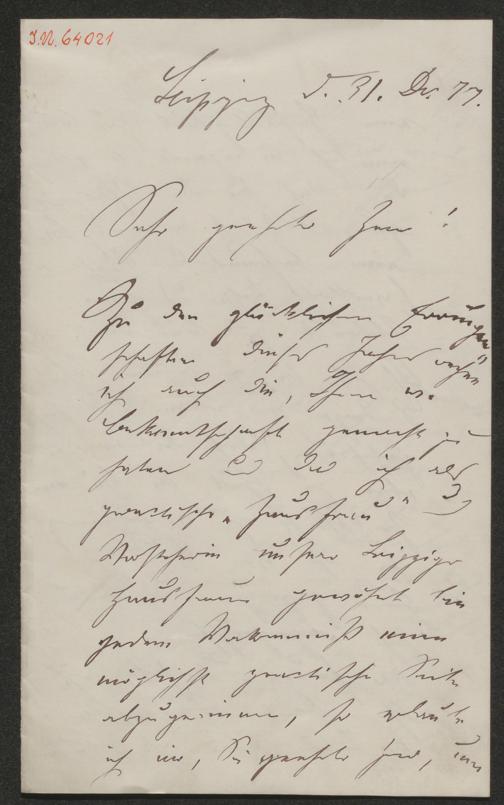 I.N. 64021
Leipzig d. 31. Dec. 77.
Sehr geehrter Herr!
Zu den glücklichen Errungen
schaften dieses Jahres rechne
ich auch die, Ihre w.
Bekanntschaft gemacht zu
haben u. da ich als
practische „Hausfrau" u.
Vorsteherin unserer Leipziger
Hausfrauen gewöhnt bin
jedem Vorkommniß eine
möglichst practische Seite
abzugewinnen, so erlaube
ich mir, Sie geehrter Herr, um